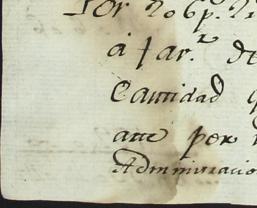 Por 206p.
á far.^r de
Cantidad q
ante per
Administracio